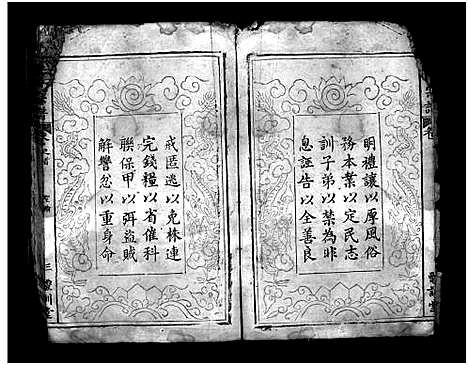 明禮讓以厚風俗
務本業以定民志
訓子弟以禁為非
息誣告以全善良
戒匿逃以免株連
完錢糧以省催科
聯保甲以弭盜賊
解讐忿以重身命
三禮訓堂